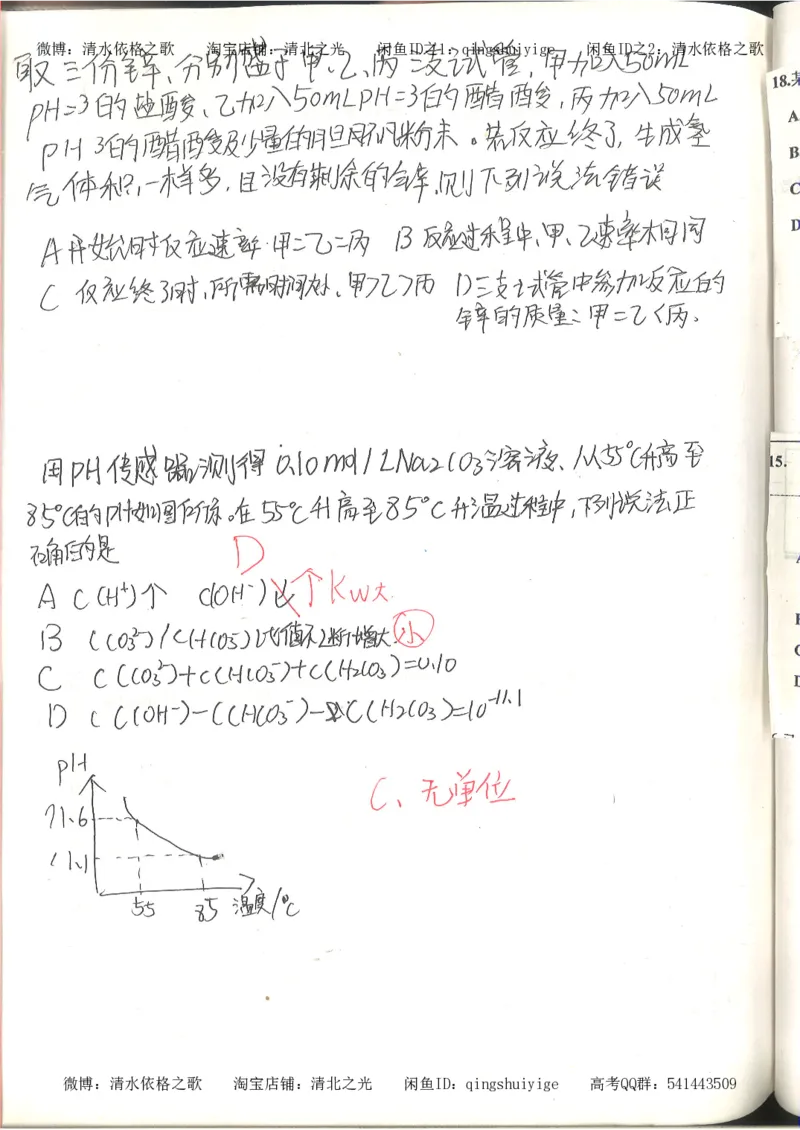 微博：清水依格之歌 淘宝店铺：清北之光 闲鱼ID之1：qingshuiyige 闲鱼ID之2：清水依格之歌
取三份锌、分别盛于甲、乙、丙三支试管，甲加入50mL
pH=3的盐酸、乙加入50mLpH=3的醋酸，丙加入50mL
pH 3的醋酸及少量的胆矾粉末。若反应终了，生成氢
气体积一样多，且没有剩余的锌，则下列说法错误
A 开始时反应速率 甲=乙=丙 B 反应过程中、甲、乙速率相同
C 反应终了时，所需时间为，甲>乙>丙 D 三支试管中参加反应的
锌的质量：甲=乙<丙、
18.某
A
B
C
D
用pH传感器测得0.10mol/LNa2CO3溶液、从55℃升高至
85℃的pH如图所示。在55℃升高至85℃升温过程中，下列说法正
确的是
D
A C(H+)个 C(OH-) ↑Kw大
B C(CO3²-)/C(HCO3-)比值不断增大 小
C C(CO3²-)+C(HCO3-)+C(H2CO3)=0.10
D C(OH-)-C(HCO3-)-2C(H2CO3)=10-11.1
C、无单位
pH
11.6
11.1
55 85 温度/℃
15.
微博：清水依格之歌 淘宝店铺：清北之光 闲鱼ID：qingshuiyige 高考QQ群：541443509